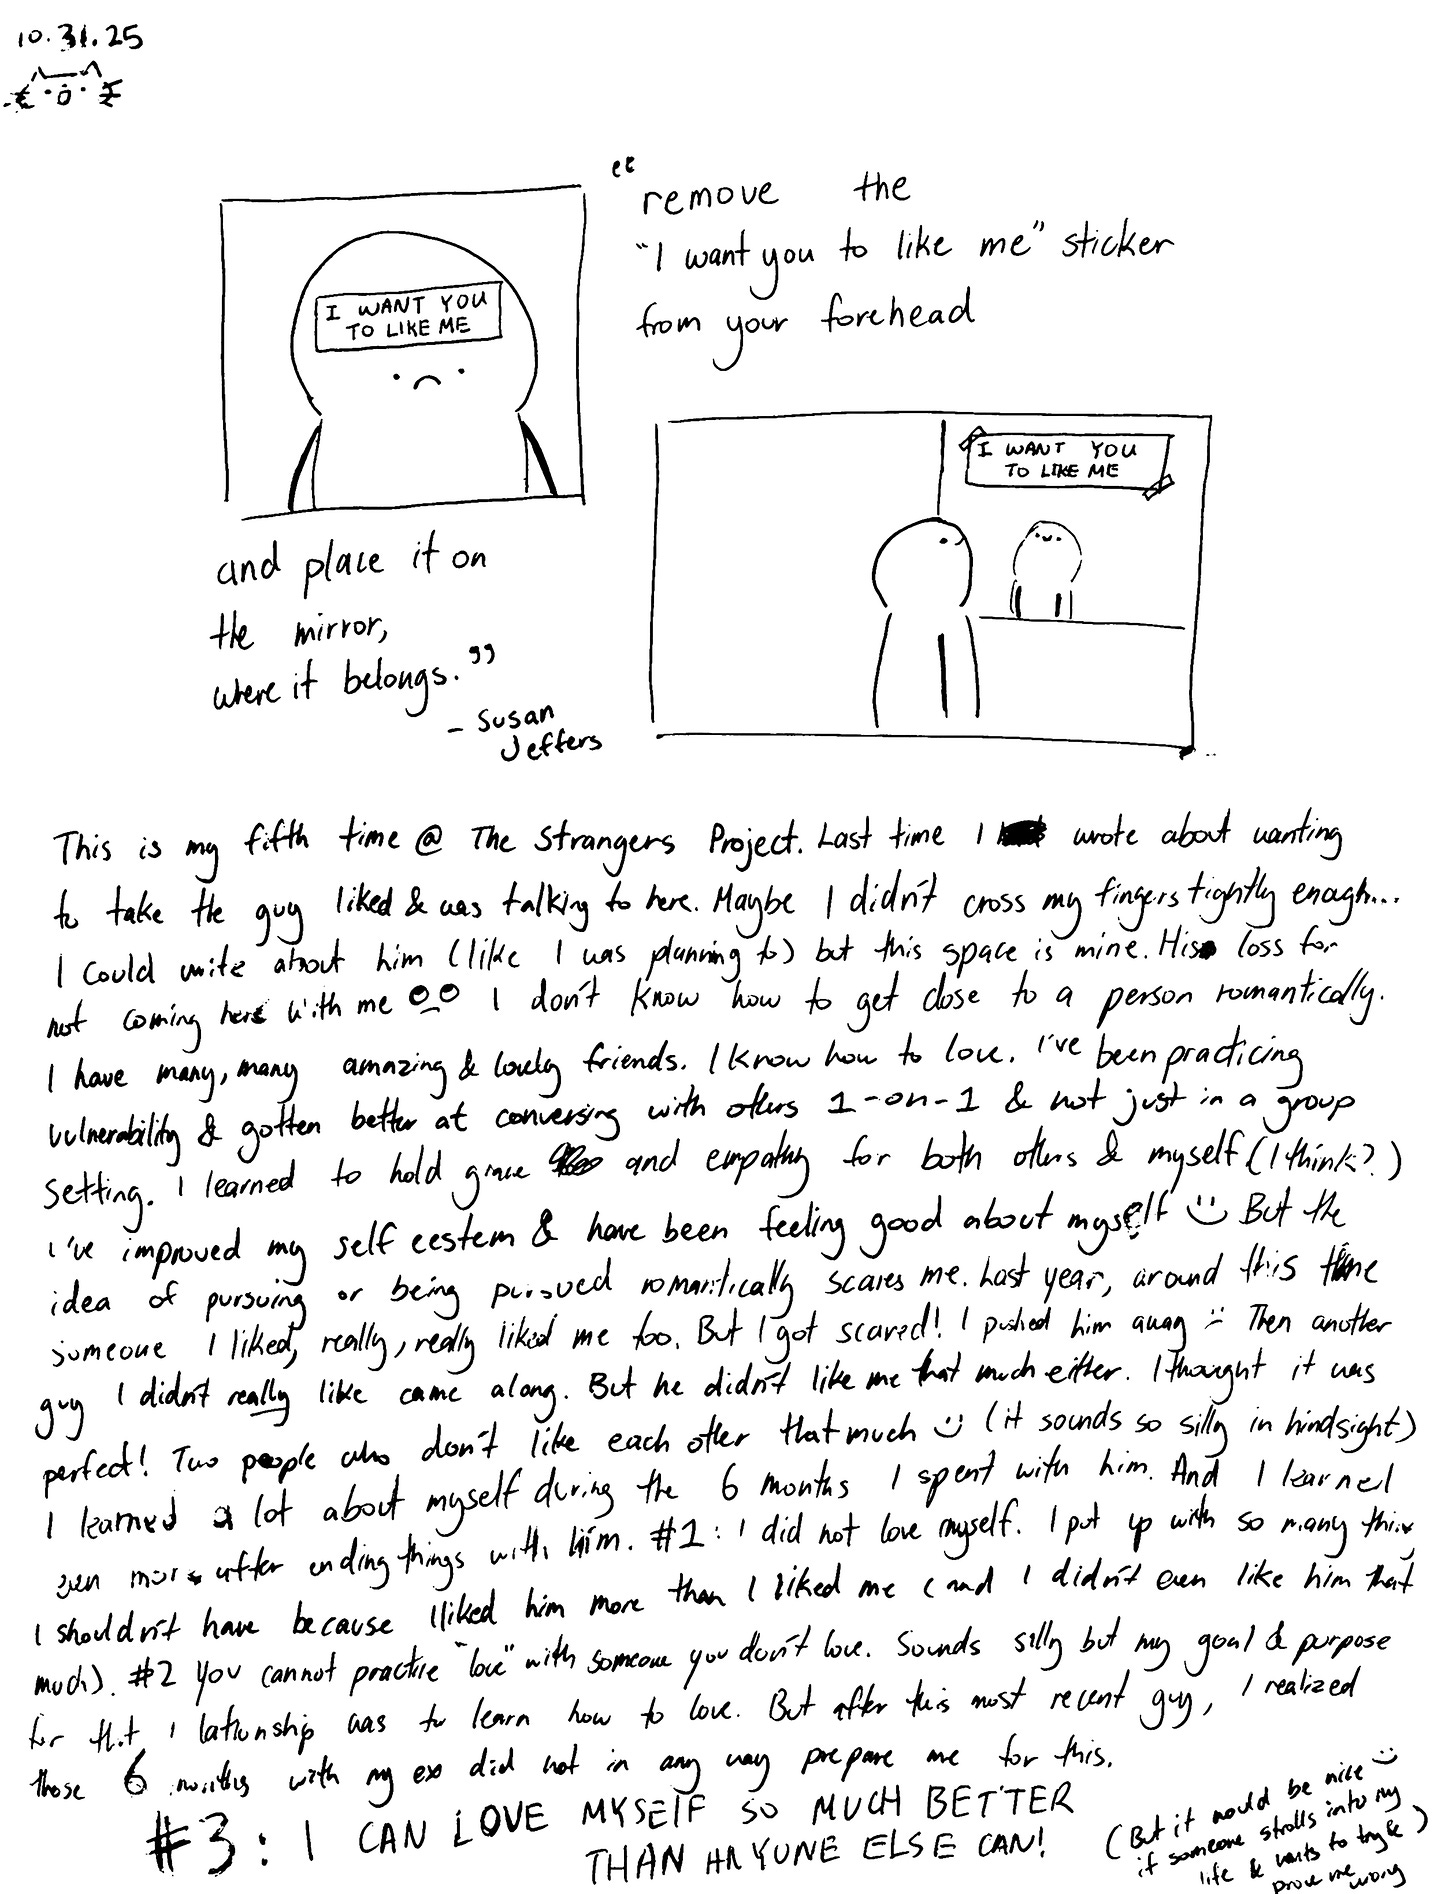 10.31.25
"remove the
"I want you to like me" sticker
from your forehead
I WANT YOU
TO LIKE ME
I WANT YOU
TO LIKE ME
and place it on
the mirror,
where it belongs."
- Susan
Jeffers
This is my fifth time @ The Strangers Project. Last time I wrote about wanting
to take the guy I liked & was talking to here. Maybe I didn't cross my fingers tightly enough...
I could write about him (like I was planning to) but this space is mine. His loss for
not coming here with me I don't know how to get close to a person romantically.
I have many, many amazing & lovely friends. I know how to love. I've been practicing
vulnerability & gotten better at conversing with others 1-on-1 & not just in a group
setting. I learned to hold grace and empathy for both others & myself (I think?)
I've improved my self eestem & have been feeling good about myself :) But the
idea of pursuing or being pursued romantically scares me. Last year, around this time
someone I liked, really, really liked me too. But I got scared! I pushed him away :( Then another
guy I didn't really like came along. But he didn't like me that much either. I thought it was
perfect! Two people who don't like each other that much :) (it sounds so silly in hindsight)
I learned a lot about myself during the 6 months I spent with him. And I learned
even more after ending things with him. #1: I did not love myself. I put up with so many things
I shouldn't have because I liked him more than I liked me (and I didn't even like him that
much). #2 You cannot practice "love" with someone you don't love. Sounds silly but my goal & purpose
for that was to learn how to love. But after this most recent guy, I realized
those 6 months with my ex did not in any way prepare me for this.
#3: I CAN LOVE MYSELF SO MUCH BETTER
THAN ANYONE ELSE CAN!
(But it would be nice :)
if someone strolls into my
life & wants to try &
prove me wrong)